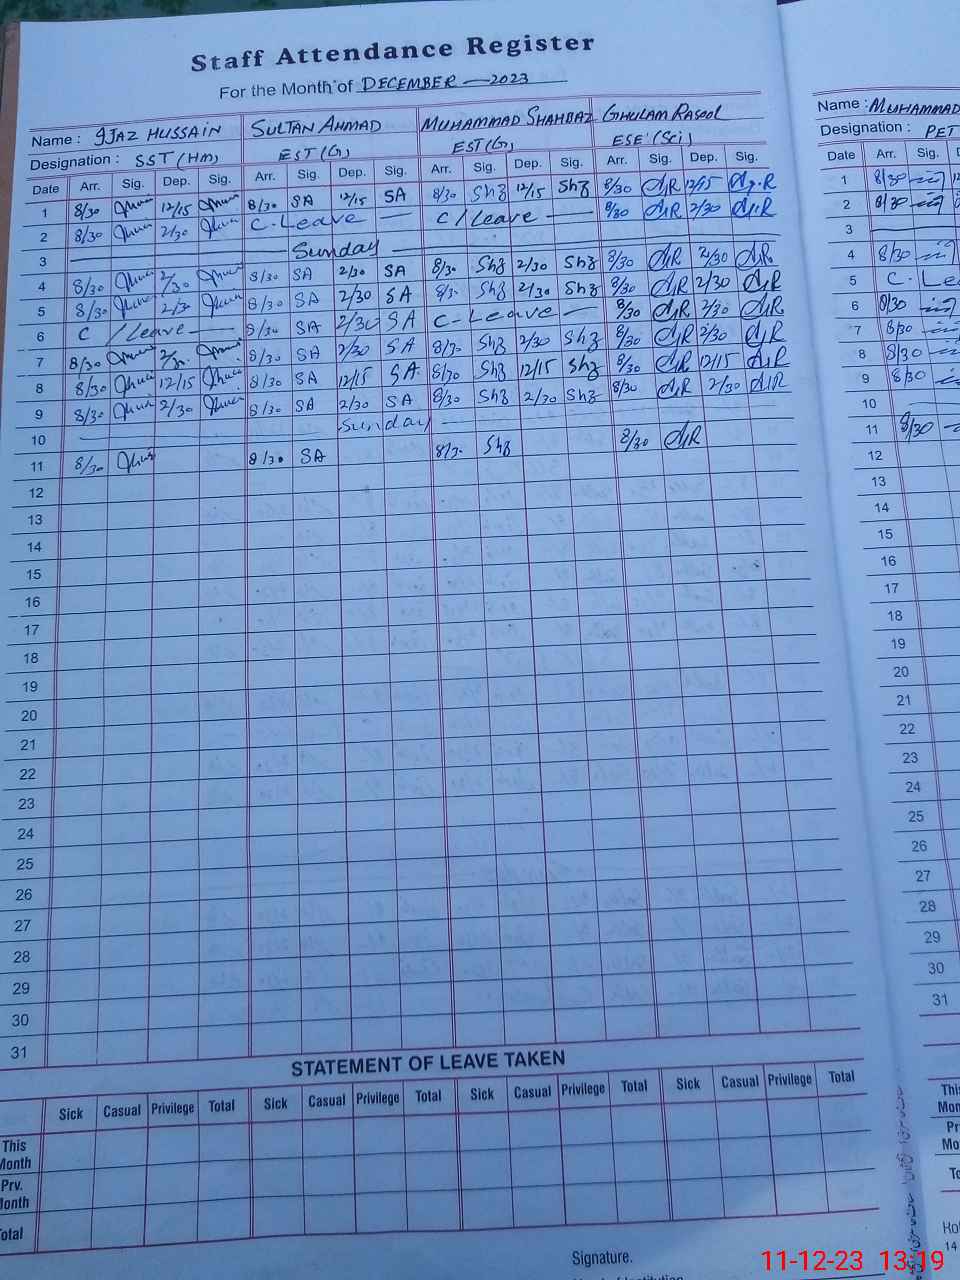 Staff Attendance Register
For the Month of DECEMBER — 2023
Name : IJAZ HUSSAIN SULTAN AHMAD MUHAMMAD SHAHBAZ GHULAM RASOOL Name : MUHAMMAD
Designation : SST (Hm) EST (G) EST (G) ESE (Sci) Designation : PET
Date Arr. Sig. Dep. Sig. Arr. Sig. Dep. Sig. Arr. Sig. Dep. Sig. Arr. Sig. Dep. Sig. Date Arr. Sig.
1 8/30 12/15 8/30 SA 12/15 SA 8/30 Shz 12/15 Shz 8/30 12/15 1 8/30
2 8/30 2/30 C-Leave — C/Leave — 8/30 2/30 2 8/30
3 — Sunday — 3
4 8/30 2/30 8/30 SA 2/30 SA 8/30 Shz 2/30 Shz 8/30 2/30 4 8/30
5 8/30 2/30 8/30 SA 2/30 SA 8/30 Shz 2/30 Shz 8/30 2/30 5 C. Lea
6 C/Leave — 8/30 SA 2/30 SA C-Leave — 8/30 2/30 6 8/30
7 8/30 2/30 8/30 SA 2/30 SA 8/30 Shz 2/30 Shz 8/30 2/30 7 8/30
8 8/30 12/15 8/30 SA 12/15 SA 8/30 Shz 12/15 Shz 8/30 12/15 8 8/30
9 8/30 2/30 8/30 SA 2/30 SA 8/30 Shz 2/30 Shz 8/30 2/30 9 8/30
10 — Sunday — 10
11 8/30 8/30 SA 8/30 Shz 8/30 11 8/30
12 12
13 13
14 14
15 15
16 16
17 17
18 18
19 19
20 20
21 21
22 22
23 23
24 24
25 25
26 26
27 27
28 28
29 29
30 30
31 31
STATEMENT OF LEAVE TAKEN
Sick Casual Privilege Total Sick Casual Privilege Total Sick Casual Privilege Total Sick Casual Privilege Total
This Month
Prv. Month
Total
Signature.
11-12-23 13:19